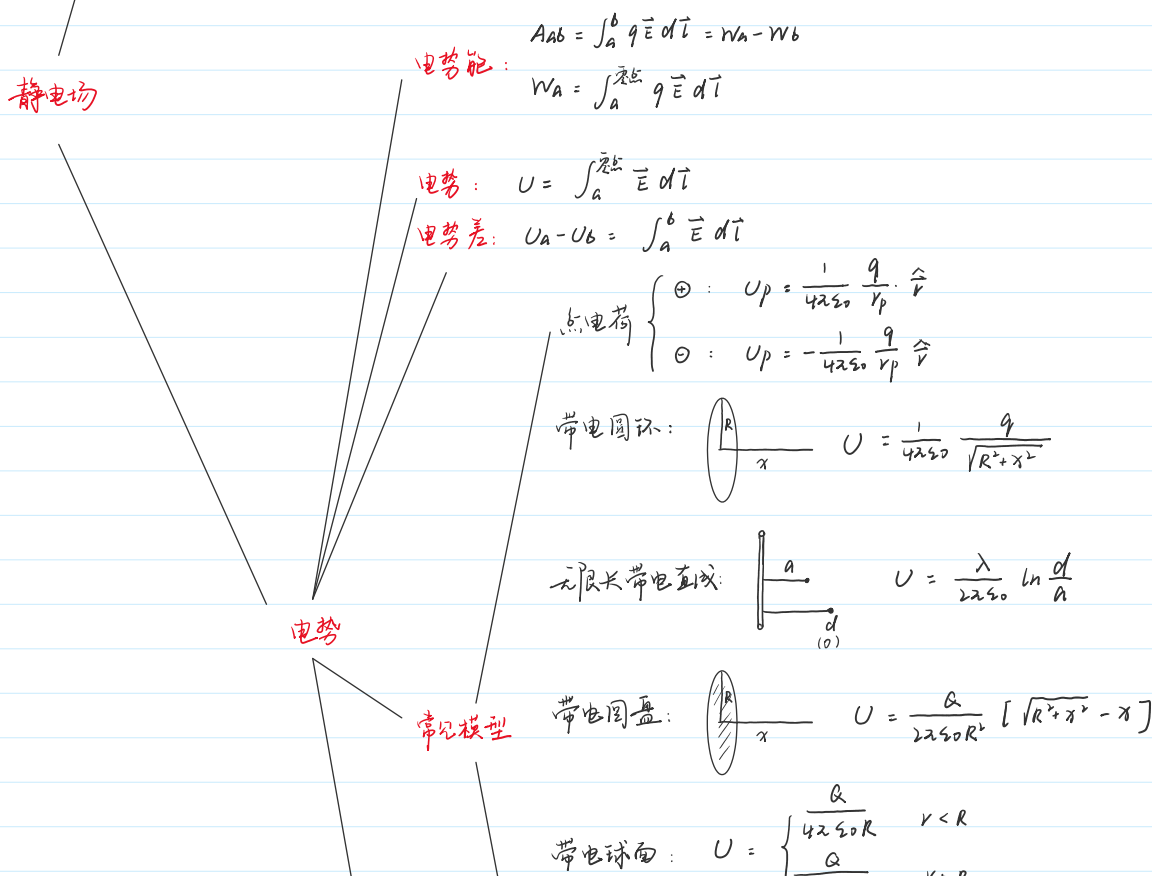 静电场
电势能: A_{ab} = ∫_a^b q\vec{E} d\vec{l} = W_a - W_b
W_a = ∫_a^{零点} q\vec{E} d\vec{l}
电势: U = ∫_a^{零点} \vec{E} d\vec{l}
电势差: U_a - U_b = ∫_a^b \vec{E} d\vec{l}
点电荷 { ⊕: U_p = \frac{1}{4πε_0} \frac{q}{r_p} · \hat{\vec{r}}
⊖: U_p = -\frac{1}{4πε_0} \frac{q}{r_p} \hat{\vec{r}}
带电圆环: R x U = \frac{1}{4πε_0} \frac{q}{\sqrt{R^2+x^2}}
无限长带电直线: a d (0) U = \frac{λ}{2πε_0} ln \frac{d}{a}
电势
常见模型
带电圆盘: R x U = \frac{Q}{2πε_0R^2} [\sqrt{R^2+x^2} - x]
带电球面: U = { \frac{Q}{4πε_0R} r < R
Q